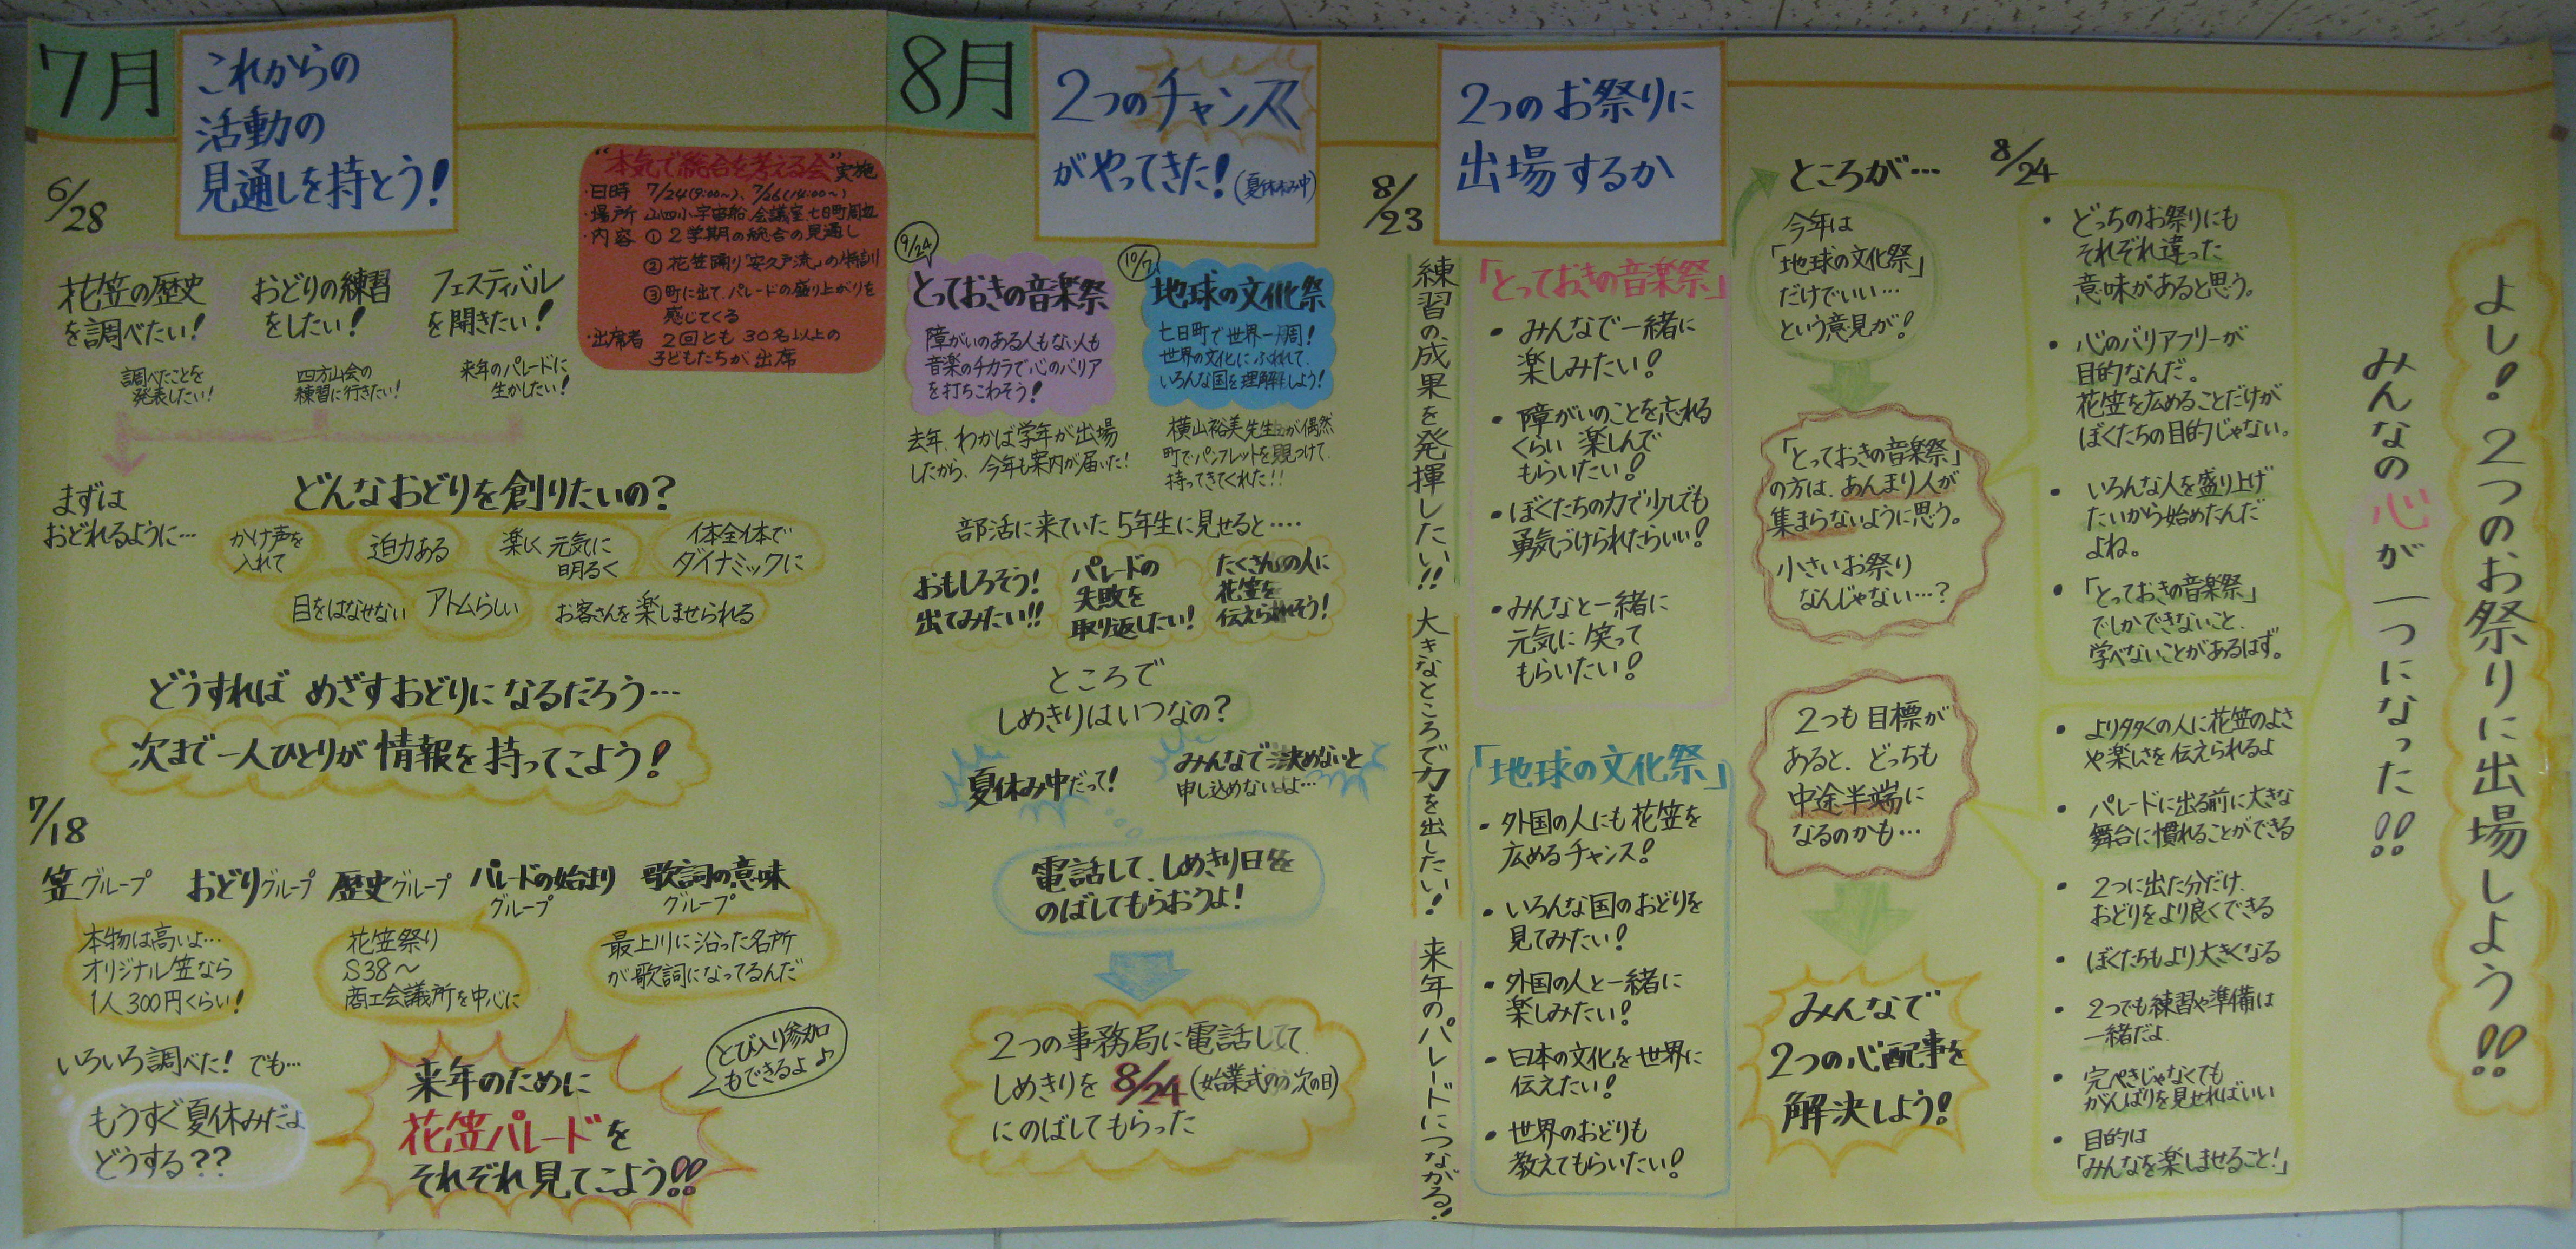 7月
これからの
活動の
見通しを持とう!
6/28
花笠の歴史
を調べたい!
調べたことを
発表したい!
おどりの練習
をしたい!
四方山会の
練習に行きたい!
フェスティバル
を開きたい!
来年のパレードに
生かしたい!
"本気で統合を考える会"実施
・日時 7/24(9:00~)、7/26(14:00~)
・場所 山四小宇宙船、会議室、七日町周辺
・内容 ①2学期の統合の見通し
②花笠踊り「安久戸流」の特訓
③町に出て、パレードの盛り上がりを
感じてくる
・出席者 2回とも30名以上の
子どもたちが出席
まずは
おどれるように…
どんなおどりを創りたいの?
かけ声を
入れて
迫力ある
楽しく元気に
明るく
体全体で
ダイナミックに
目をはなせない
アトムらしい
お客さんを楽しませられる
どうすれば めざすおどりに なるだろう…
次まで一人ひとりが情報を持ってこよう!
7/18
笠グループ
本物は高いよ…
オリジナル笠なら
1人300円くらい!
おどりグループ
歴史グループ
花笠祭り
S38~
商工会議所を中心に
パレードの始まり
グループ
歌詞の意味
グループ
最上川に沿った名所
が歌詞になってるんだ
いろいろ調べた! でも…
もうすぐ夏休みだよ
どうする??
来年のために
花笠パレードを
それぞれ見てこよう!!
とび入り参加
もできるよ♪
8月
2つのチャンス
がやってきた!(夏休み中)
9/24
とっておきの音楽祭
障がいのある人もない人も
音楽のチカラで心のバリア
を打ちこわそう!
去年、わかば学年が出場
したから、今年も案内が届いた!
10/7
地球の文化祭
七日町で世界一周!
世界の文化にふれて、
いろんな国を理解しよう!
横山裕美先生が偶然
町でパンフレットを見つけて
持ってきてくれた!!
部活に来ていた5年生に見せると‥‥
おもしろそう!
出てみたい!!
パレードの
失敗を
取り返したい!
たくさんの人に
花笠を
伝えられそう!
ところで
しめきりはいつなの?
夏休み中だって!
みんなで決めないと
申し込めないよ…
電話して、しめきり日を
のばしてもらおうよ!
2つの事務局に電話して
しめきりを 8/24(始業式の次の日)
にのばしてもらった
8/23
2つのお祭りに
出場するか
練習の成果を発揮したい!! 大きなところで力を出したい! 来年のパレードにつながる!
「とっておきの音楽祭」
・みんなで一緒に
楽しみたい!
・障がいのことを忘れる
くらい 楽しんで
もらいたい!
・ぼくたちの力で少しでも
勇気づけられたらいい!
・みんなと一緒に
元気に笑って
もらいたい!
「地球の文化祭」
・外国の人にも花笠を
広めるチャンス!
・いろんな国のおどりを
見てみたい!
・外国の人と一緒に
楽しみたい!
・日本の文化を世界に
伝えたい!
・世界のおどりも
教えてもらいたい!
ところが…
今年は
「地球の文化祭」
だけでいい…
という意見が!
「とっておきの音楽祭」
の方は、あんまり人が
集まらないように思う。
小さいお祭り
なんじゃない…?
2つも目標が
あると、どっちも
中途半端に
なるのかも…
みんなで
2つの心配事を
解決しよう!
8/24
・どっちのお祭りにも
それぞれ違った
意味があると思う。
・心のバリアフリーが
目的なんだ。
花笠を広めることだけが
ぼくたちの目的じゃない。
・いろんな人を盛り上げ
たいから始めたんだ
よね。
・「とっておきの音楽祭」
でしかできないこと、
学べないことがあるはず。
・より多くの人に花笠のよさ
や楽しさを伝えられるよ
・パレードに出る前に大きな
舞台に慣れることができる
・2つに出た分だけ、
おどりをより良くできる
・ぼくたちもより大きくなる
・2つでも練習や準備は
一緒だよ
・完ぺきじゃなくても
がんばりを見せればいい
・目的は
「みんなを楽しませること!」
みんなの心が一つになった!!
よし!2つのお祭りに出場しよう!!